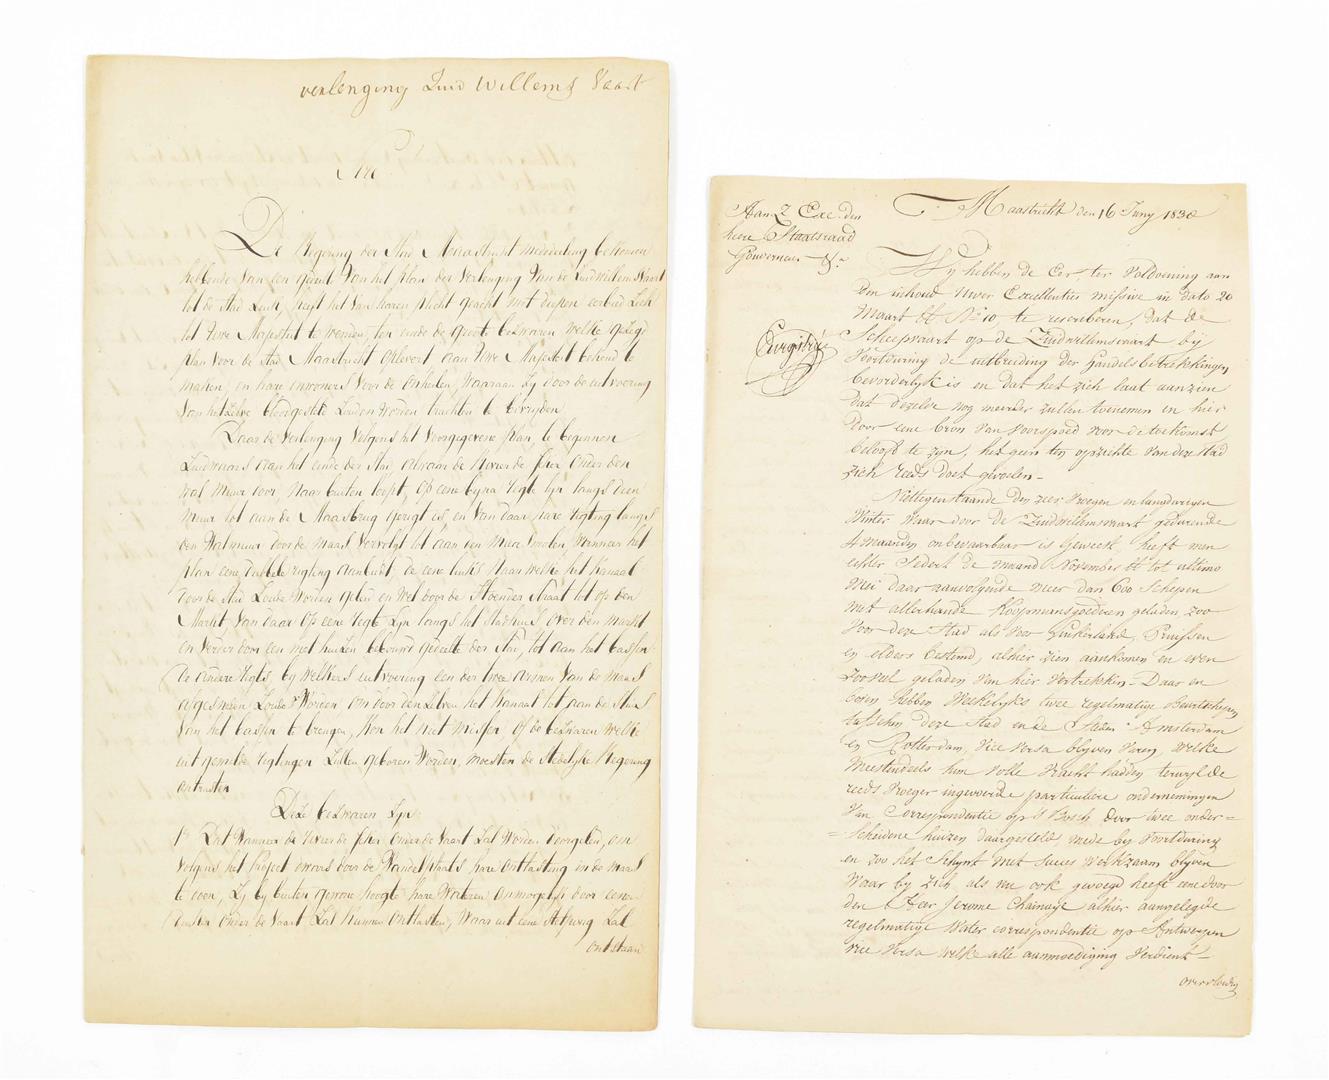 verlenging Zuid Willems Vaart
Sire
De Regering der Stad Maastricht mededeeling bekomen
hebbende van een gevolg van het plan der verlenging van de Zuid Willems Vaart
tot de Stad Luik, heeft het van haren plicht geacht met diepen eerbied zich
tot Uwe Majesteit te wenden, ten einde de groote bezwaren welke gezegd
plan voor de Stad Maastricht oplevert aan Uwe Majesteit bekend te
maken, en hare inwoners voor de onheilen, waaraan zij door de uitvoering
van hetzelve blootgesteld zouden worden trachten te bevrijden
Daar de verlenging volgens het voorgegevene plan, te beginnen
Zuidwaars aan het einde der Stad, alwaar de Rivier de Jeker onder den
wal muur door, naar buiten loopt, op eene bijna regte lijn langs dien
muur tot aan de Maasbrug gerigt is en van daar hare rigting langs
den Walmuur door de Maas vervolgt tot aan den Molen, wanneer het
plan eene dubbele rigting aanbiedt, de eene links naar welke het kanaal
door de Stad zoude worden geleid en wel door de Hoender Straat tot op den
Markt, van daar op eene regte lijn langs het Stadhuis over den markt
en verder door een met huizen bebouwd gedeelte der Stad, tot aan het bassin
De andere regts bij welkers uitvoering een der twee armen van de Maas
afgesneden zoude worden om door denzelven het Kanaal tot aan de Sluis
van het bassin te brengen, kon het niet missen of de bezwaren welke
uit gemelde rigtingen zullen geboren worden, moesten de Stedelijke Regering
ontrusten
Deze bezwaren zijn
1° Dat wanneer de rivier de Jeker onder de Vaart zal worden doorgeleid, om
volgens het project overal door de Wandelplaats hare ontlasting in de maas
te doen, zij bij buiten gewone hoogte hare wateren onmogelijk door eenen
duiker onder de Vaart zal kunnen ontlasten, waar uit eene stopping zal
ontstaan
Aan Z Exc. den
heere Staatsraad
Gouverneur &a
Maastricht den 16 Juny 1830
Geregistré
Wij hebben de Eer ter voldoening aan
den inhoud Uwer Excellenties missive in dato 20
Maart ll No 10 te rescriberen, dat de
Scheepvaart op de Zuidwillemsvaart bij
Voortduring de uitbreiding der handelsbetrekkingen
bevorderlijk is en dat het zich laat aanzien
dat dezelve nog meerder zullen toenemen en hier
door eene bron van voorspoed voor de toekomst
belooft te zijn, het geen ten opzichte van deze stad
zich reeds doet gevoelen –
Niettegenstaande den zeer vroegen en langdurigen
Winter waar door de Zuidwillemsvaart gedurende
4 maanden onbevaarbaar is geweest, heeft men
echter sedert de maand November ll tot ultimo
Mei daar aanvolgende meer dan 600 Schepen
met allerhande Koopmansgoederen geladen, zoo
voor deze Stad als voor Luikerland, Pruissen
en elders bestemd, alhier zien aankomen en even
zooveel geladen van hier vertrekken – Daar en
boven hebben wekelijks twee regelmatige Beurtschepen
tusschen deze Stad en de Steden Amsterdam
en Rotterdam, Vice Versa blijven Varen, Welke
Meestendeels hun volle Vracht hadden terwijl de
reeds vroeger ingevoerde particuliere ondernemingen
van Correspondentie op 's Bosch door twee onder=
=scheidene huizen daargesteld, mede bij Voortduring
en zoo het Schijnt met Succes Werkzaam blijven
Waar bij zich als nu ook gevoegd heeft eene door
den Heer Jerome Chainaye alhier aangelegde
regelmatige Water correspondentie op Antwerpen
vice Versa welke alle aanmoediging Verdient –